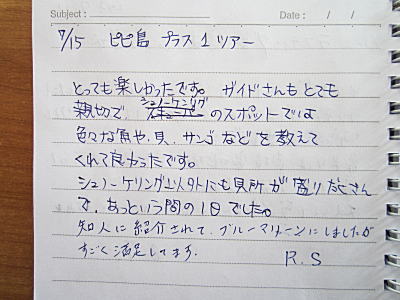 Subject : Date : / /
7/15 ピピ島 プラス1ツアー
とっても楽しかったです。ガイドさんもとても
親切で、シュノーケリングのスポットでは
色々な魚や、貝、サンゴなどを教えて
くれて良かったです。
シュノーケリング以外にも見所が盛りだくさん
で、あっという間の1日でした。
知人に紹介されて、ブルーマリーンにしましたが
すごく満足してます。
R.S